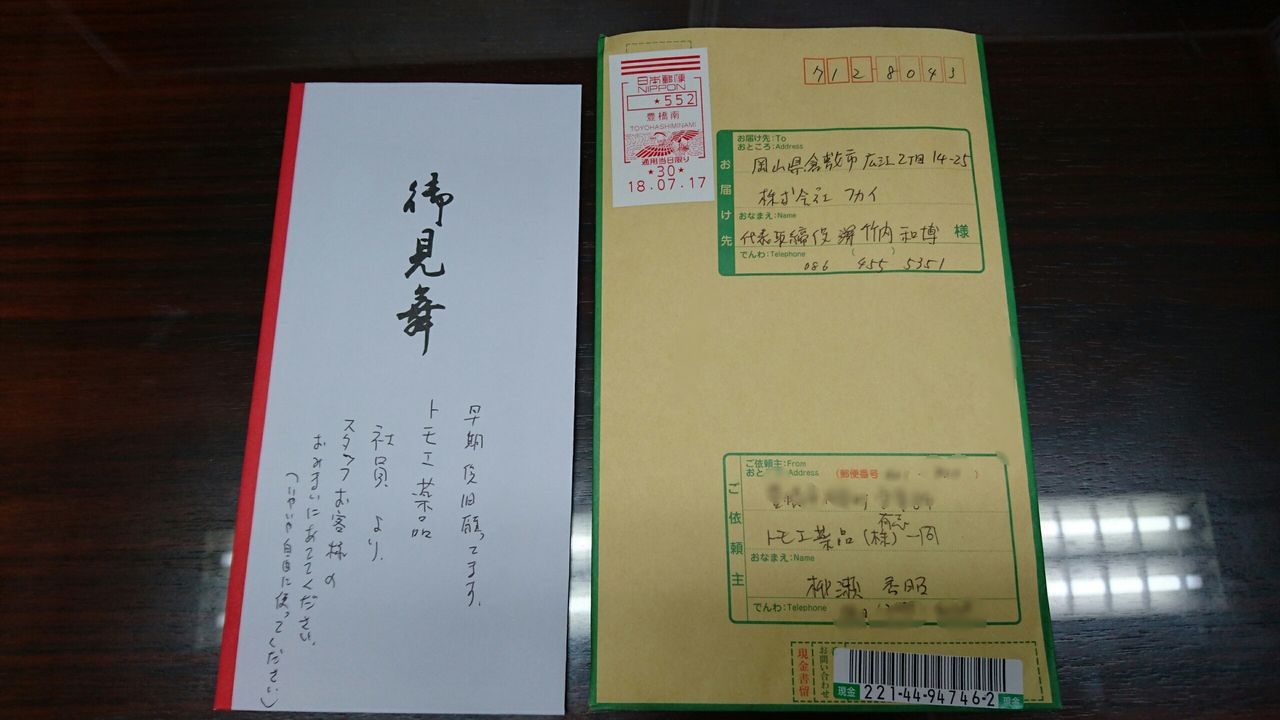 御見舞
早期復旧願ってます。
トモエ薬品
社員 より
スタッフお客様の
おみまいにあててください。
自由に使ってください)
日本郵便
NIPPON
★552
豊橋南
TOYOHASHIMINAMI
通用当日限り
★30★
18.07.17
712-8043
お届け先
お届け先:To
おところ:Address
岡山県倉敷市広江2丁目14-25
株式会社 フカイ
おなまえ:Name
代表取締役 竹内 和博 様
でんわ:Telephone
086 ( 455 ) 5351
ご依頼主
ご依頼主:From
Address
(郵便番号 - )
有志
トモエ薬品(株)一同
おなまえ:Name
柳瀬 香昭
でんわ:Telephone
現金書留
お問い合わせ
現金 221-44-94746-2 現金